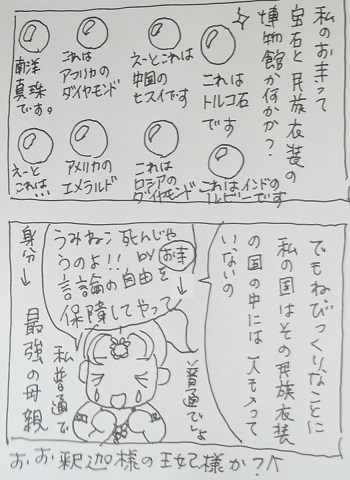 私のお寺って
宝石と民族衣装の
博物館か何かか?
これは
トルコ石
です
えーとこれは
中国の
ヒスイです
これは
アフリカの
ダイヤモンド
南洋
真珠
です。
これはインドの
ルビーです
これは
ロシアの
ダイヤモンド
アメリカの
エメラルド
えーと
これは…
でもねびっくりなことに
私の国はその民族衣装
の国の中には一人も入って
いないの
お寺
うみねこ死んじゃ
うのよ!! by
言論の自由を
保障してやって
普通でしょ
私普通で
身分→最強の母親
おお釈迦様の王妃様か?